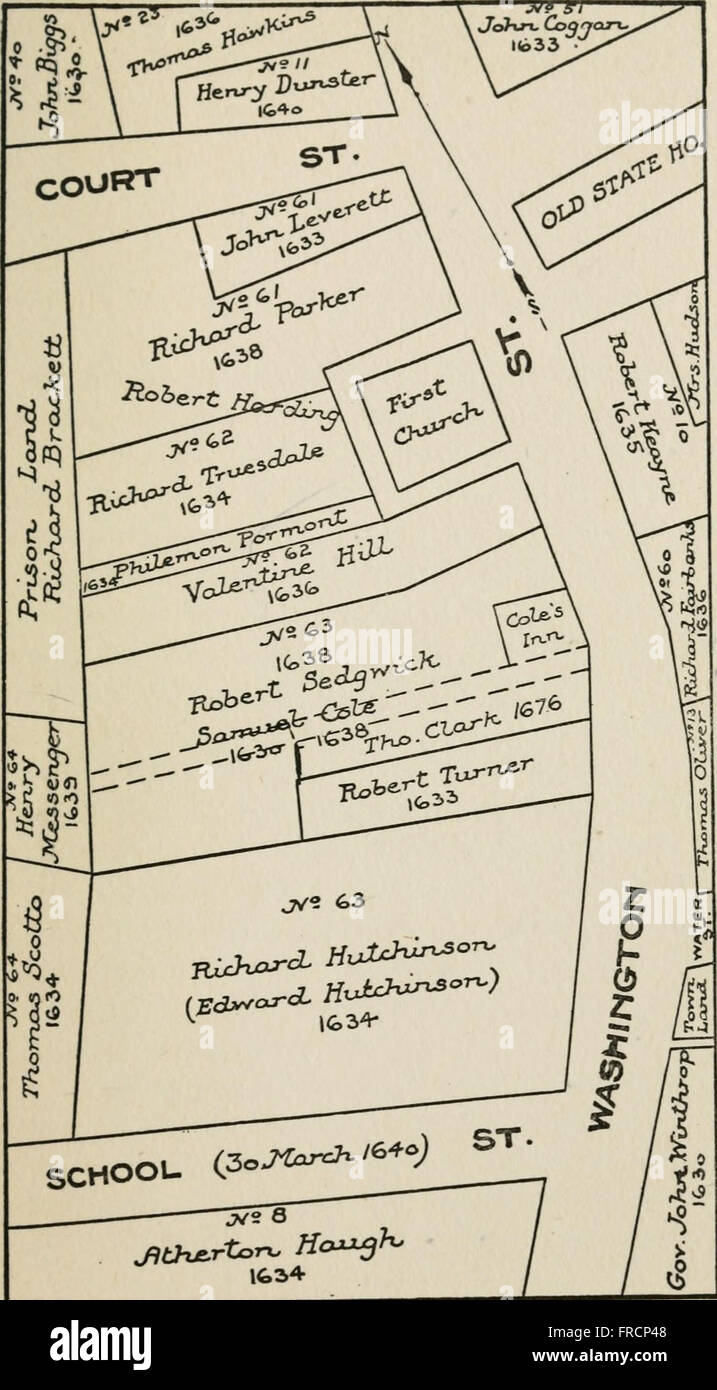 Nº 40
John Biggs
1630.
Nº 23
1636
Thomas Hawkins
Nº 11
Henry Dunster
1640
Nº 51
John Coggan
1633
COURT ST.
N
S
OLD STATE HO.
Nº 61
John Leverett
1633
Nº 61
Richard Parker
1638
Robert Harding
Nº 62
Richard Truesdale
1634
First
Church
Philemon Pormont
1634
Nº 62
Valentine Hill
1636
Nº 63
1638
Robert Sedgwick
Samuel Cole
1630 - 1638
Cole's
Inn
Tho. Clark 1676
Robert Turner
1633
Prison Land
Richard Brackett
Nº 64
Henry
Messenger
1639
Nº 64
Thomas Scotto
1634
Nº 63
Richard Hutchinson
(Edward Hutchinson)
1634
WASHINGTON ST.
Mrs. Hudson
Nº 10
Robert Keayne
1635
Nº 60
Richard Fairbanks
1636
Nº 13
Thomas Oliver
WATER
ST.
Town
Land
Gov. John Winthrop
1630
SCHOOL (30 March 1640) ST.
Nº 8
Atherton Haugh
1634
alamy
alamy
alamy
Image ID: FRCP48
www.alamy.com